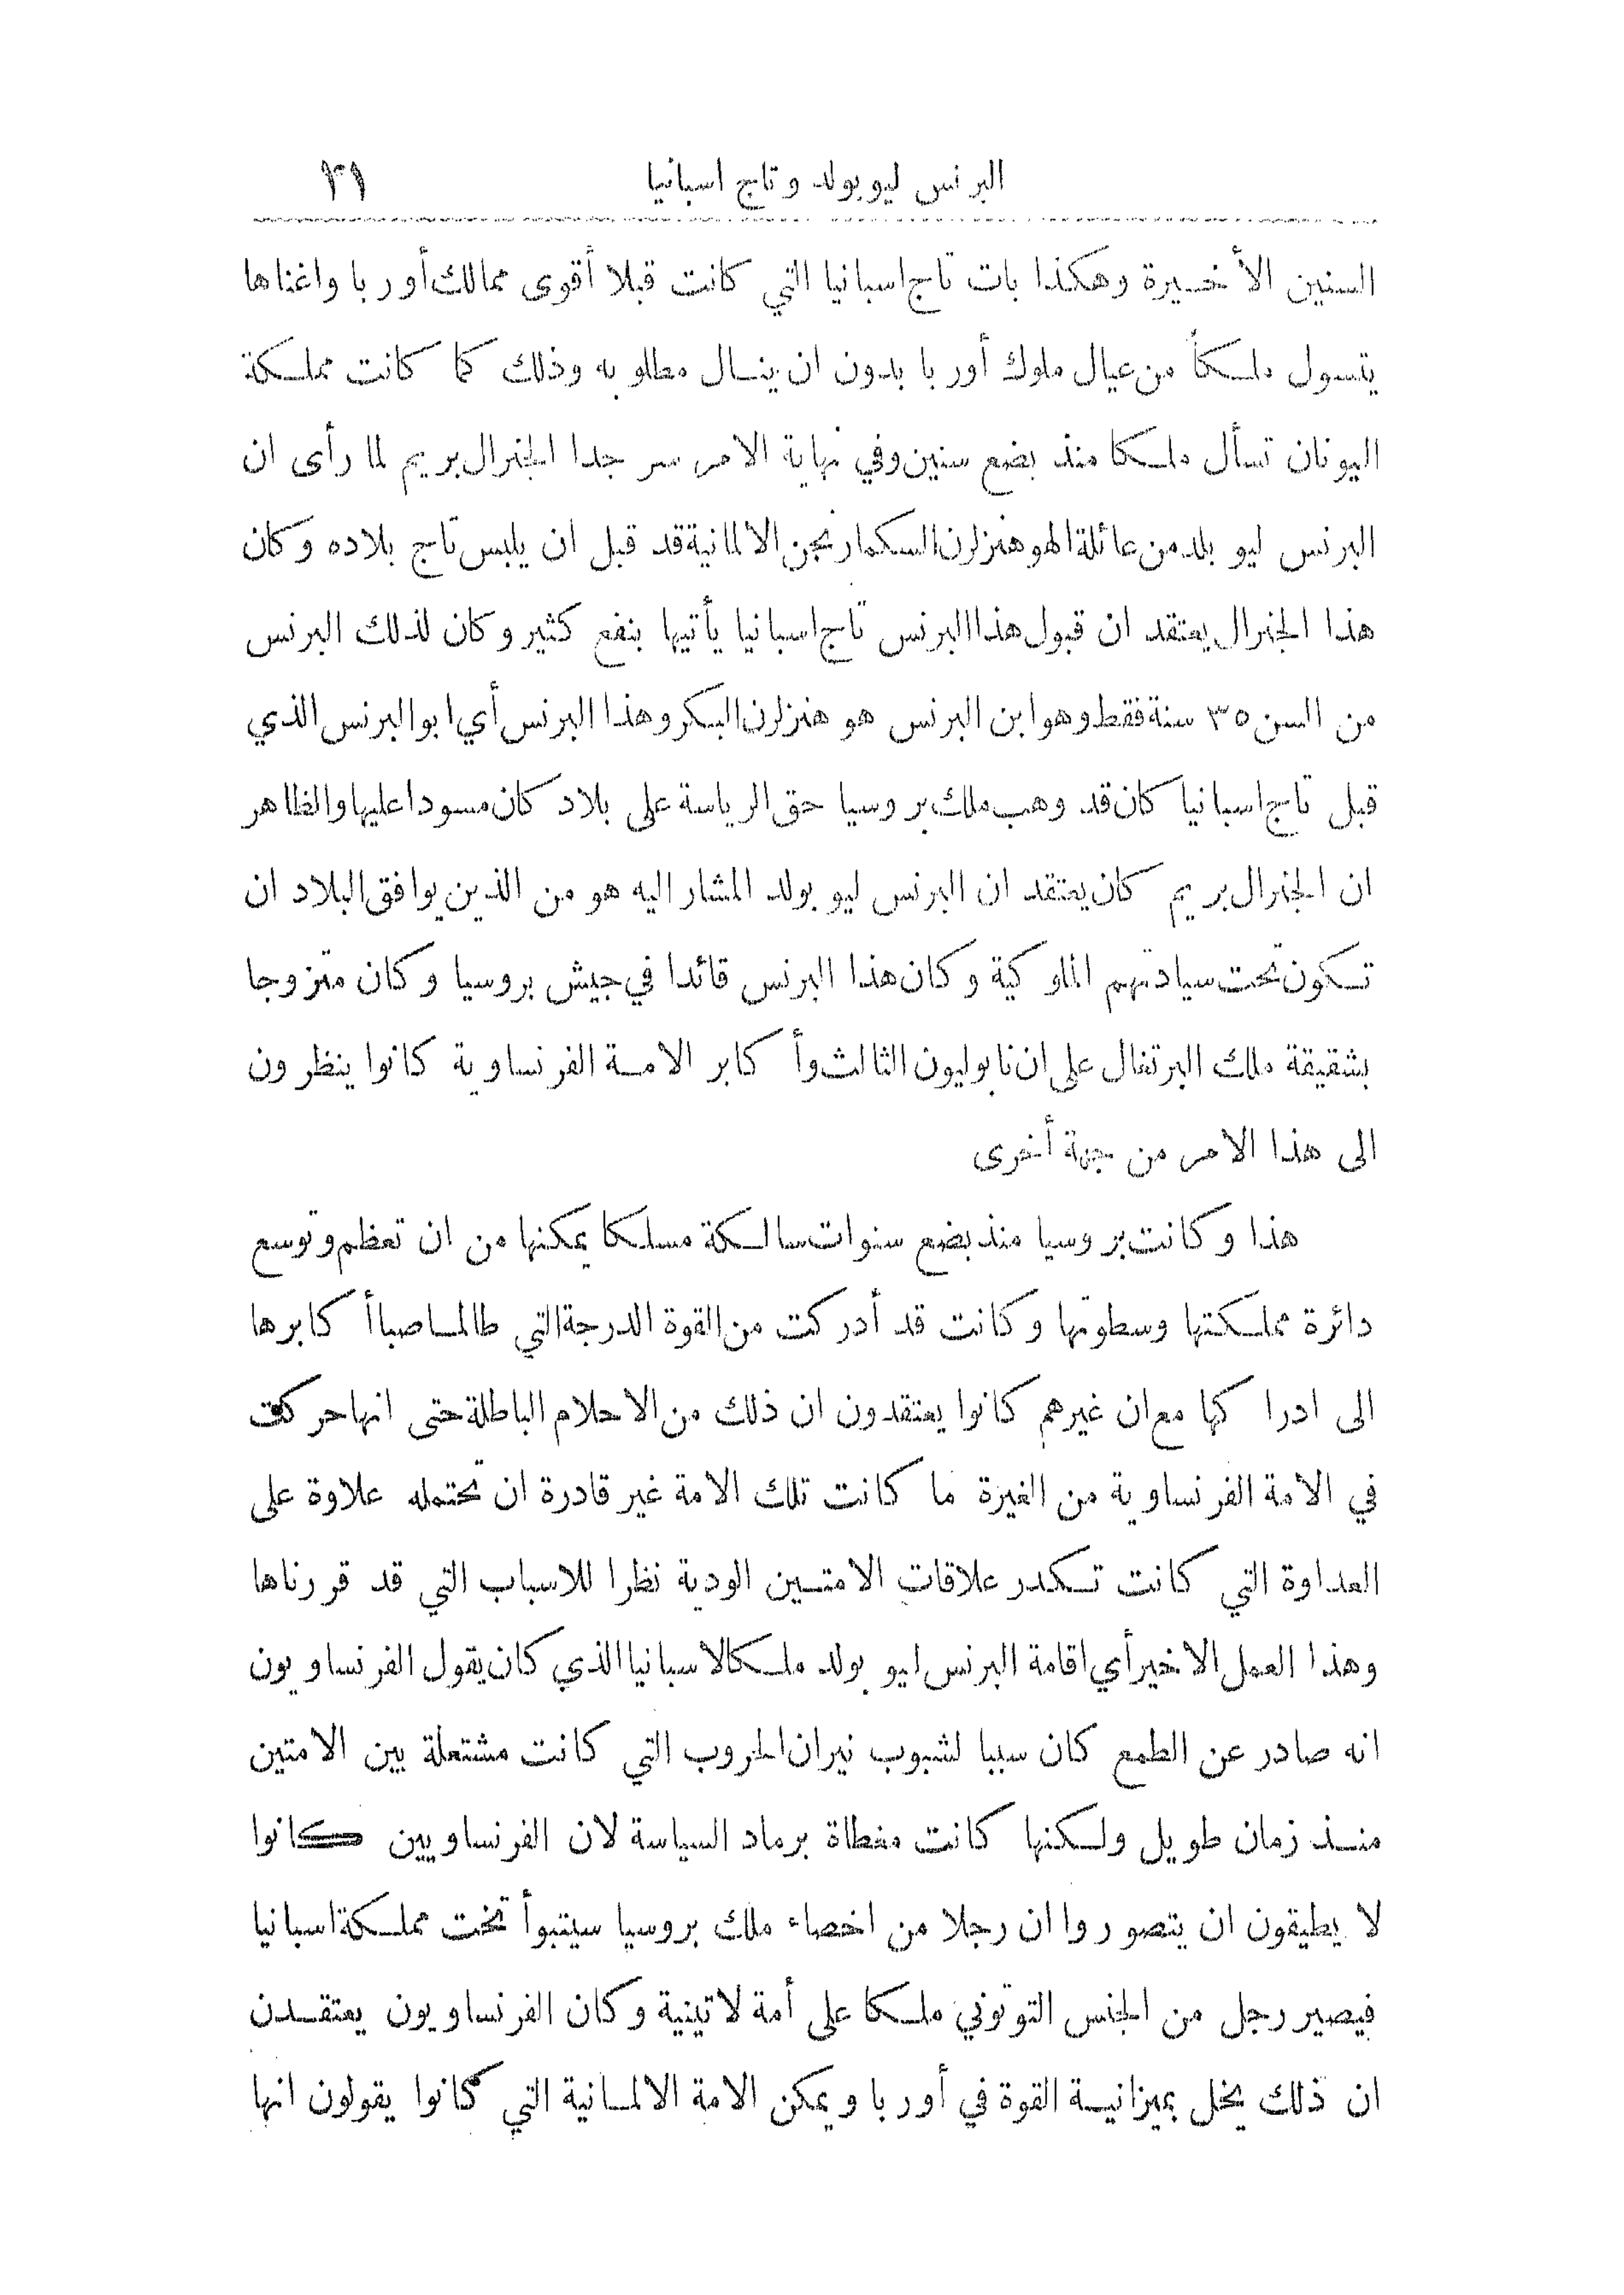 البرنس ليوبولد وتاج اسبانيا ٣١
السنين الأخيرة وهكذا بات تاج اسبانيا التي كانت قبلا أقوى ممالك أوربا واغناها
يتسول ملكاً من عيال ملوك أوربا بدون ان ينال مطلوبه وذلك كما كانت مملكة
اليونان تسأل ملكا منذ بضع سنين وفي نهاية الامر سر جدا الجنرال بريم لما رأى ان
البرنس ليوبلد من عائلة الهوهنزلرن السكمارنجن الالمانية قد قبل ان يلبس تاج بلاده وكان
هذا الجنرال يعتقد ان قبول هذا البرنس تاج اسبانيا يأتيها بنفع كثير وكان لذلك البرنس
من السن ٣٥ سنة فقط وهو ابن البرنس هوهنزلرن البكر وهذا البرنس أي ابو البرنس الذي
قبل تاج اسبانيا كان قد وهب ملك بروسيا حق الرياسة على بلاد كان مسودا عليها والظاهر
ان الجنرال بريم كان يعتقد ان البرنس ليوبولد المشار اليه هو من الذين يوافق البلاد ان
تكون تحت سيادتهم الملوكية وكان هذا البرنس قائدا في جيش بروسيا وكان متزوجا
بشقيقة ملك البرتغال على ان نابوليون الثالث وأكابر الامة الفرنساوية كانوا ينظرون
الى هذا الامر من جهة أخرى
هذا وكانت بروسيا منذ بضع سنوات سالكة مسلكا يمكنها من ان تعظم وتوسع
دائرة مملكتها وسطوتها وكانت قد أدركت من القوة الدرجة التي طالما صبا أكابرها
الى ادراكها مع ان غيرهم كانوا يعتقدون ان ذلك من الاحلام الباطلة حتى انها حركت
في الامة الفرنساوية من الغيرة ما كانت تلك الامة غير قادرة ان تحتمله علاوة على
العداوة التي كانت تكدر علاقات الامتين الودية نظرا للاسباب التي قد قررناها
وهذا العمل الاخير أي اقامة البرنس ليوبولد ملكا لاسبانيا الذي كان يقول الفرنساويون
انه صادر عن الطمع كان سببا لشبوب نيران الحروب التي كانت مشتعلة بين الامتين
منذ زمان طويل ولكنها كانت مغطاة برماد السياسة لان الفرنساويين كانوا
لا يطيقون ان يتصوروا ان رجلا من اخصاء ملك بروسيا سيتبوأ تخت مملكة اسبانيا
فيصير رجل من الجنس التوتوني ملكا على أمة لاتينية وكان الفرنساويون يعتقدن
ان ذلك يخل بميزانية القوة في أوربا ويمكن الامة الالمانية التي كانوا يقولون انها